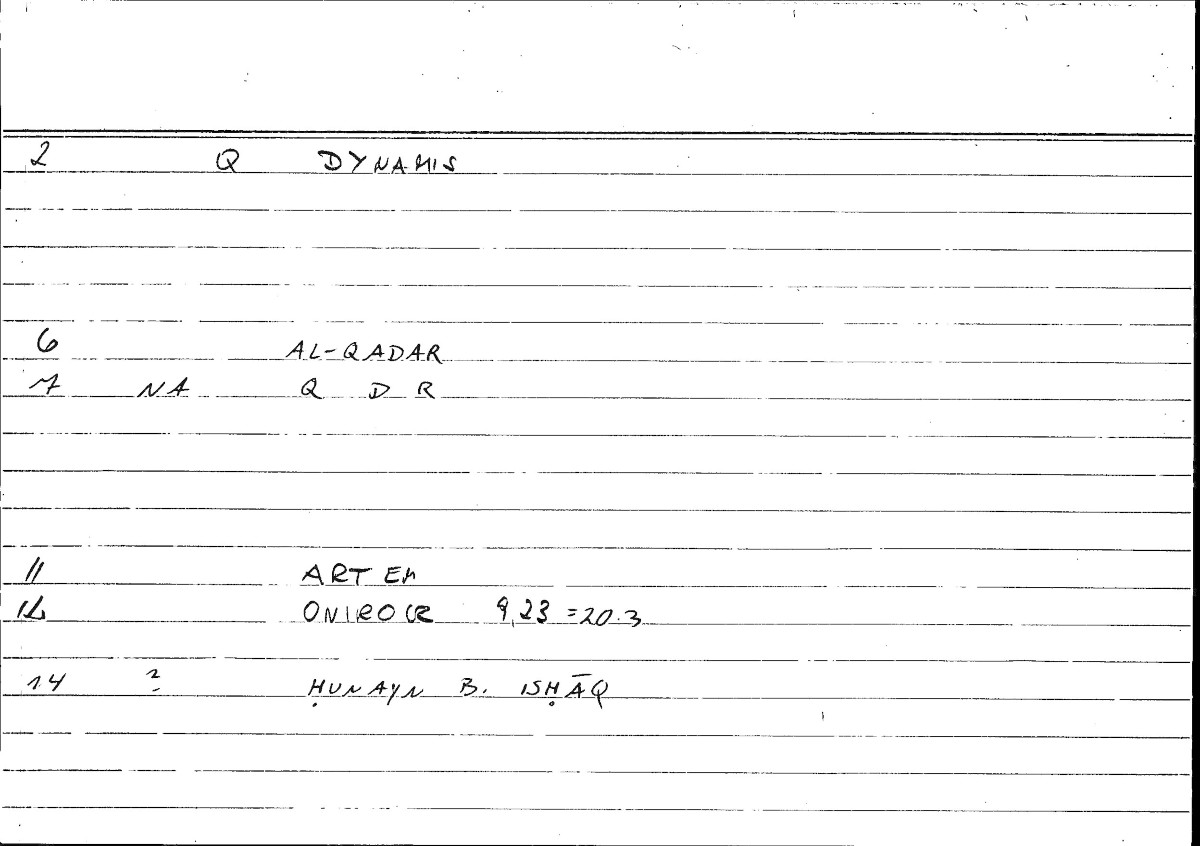 2 Q DYNAMIS
6 AL-QADAR
7 NA Q D R
11 ARTEM
12 ONIROCR 9,23 =20.3
14 2 ḤUNAYN B. ISḤĀQ